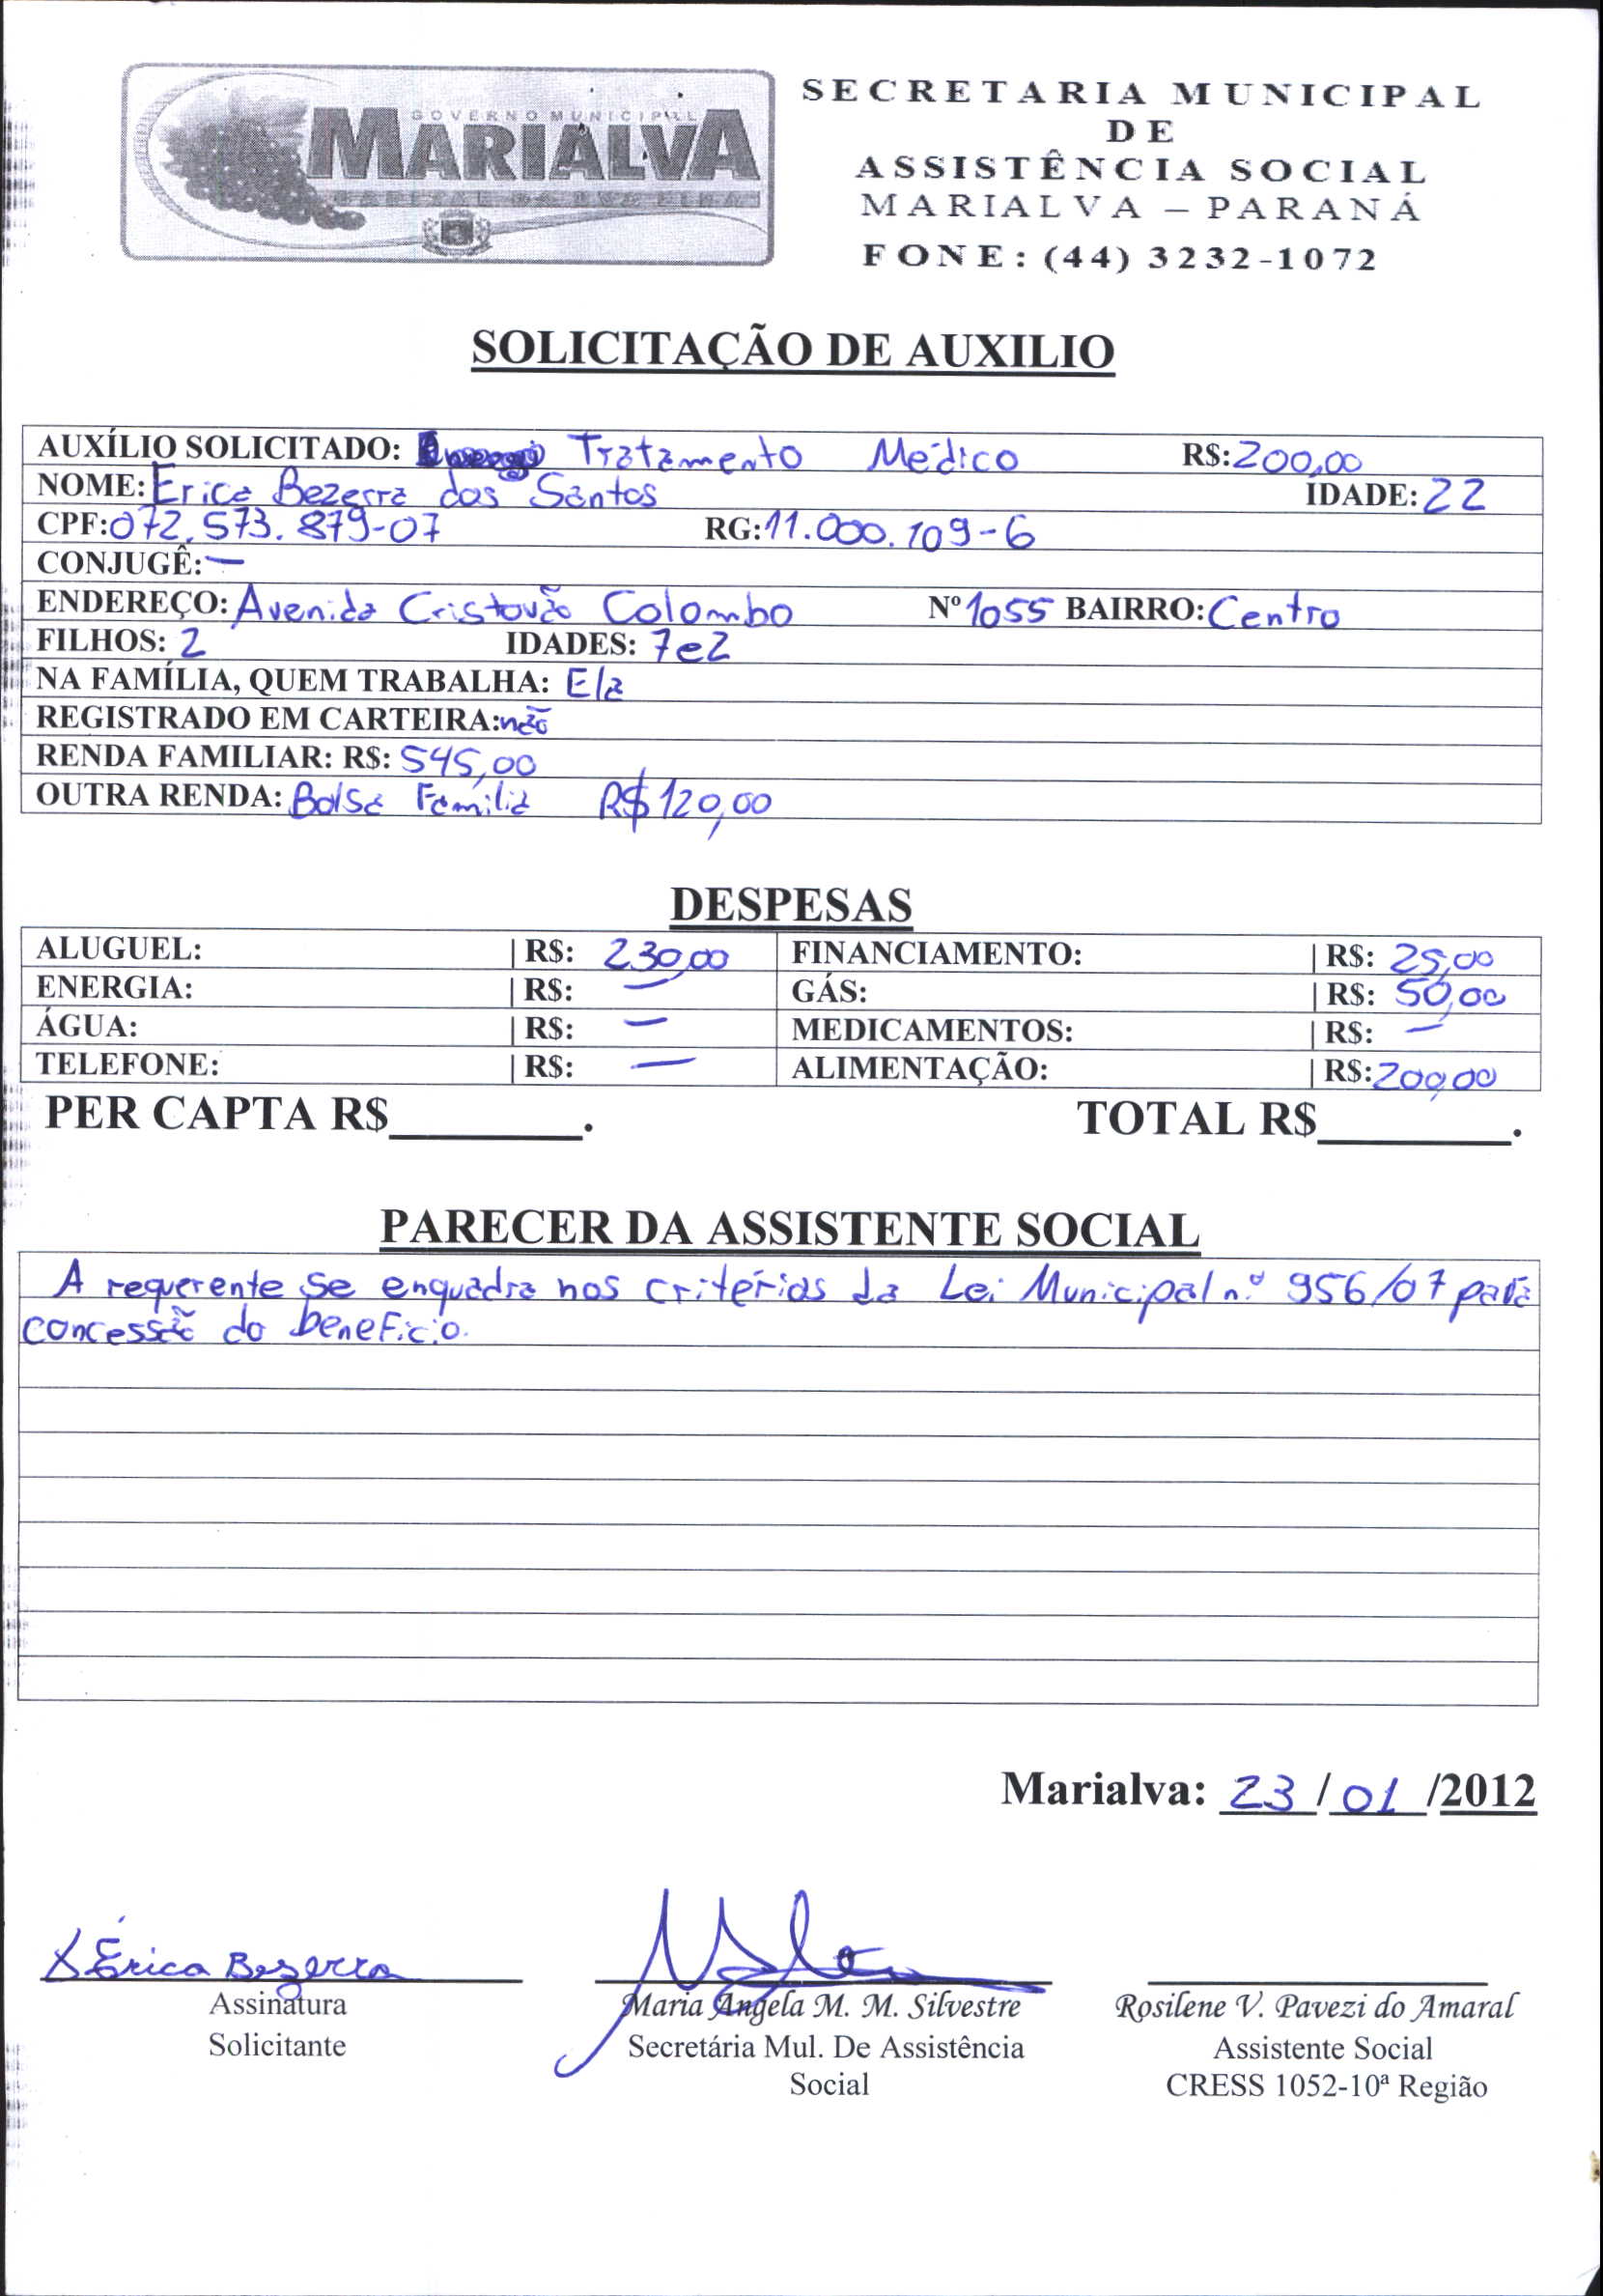 GOVERNO MUNICIPAL
MARIALVA
CAPITAL DA UVA FINA
SECRETARIA MUNICIPAL
DE
ASSISTÊNCIA SOCIAL
MARIALVA – PARANÁ
FONE: (44) 3232-1072
SOLICITAÇÃO DE AUXILIO
AUXÍLIO SOLICITADO: Tratamento Médico R$: 200,00
NOME: Erica Bezerra dos Santos IDADE: 22
CPF: 072.573.879-07 RG: 11.000.109-6
CONJUGÊ: —
ENDEREÇO: Avenida Cristovão Colombo Nº 1055 BAIRRO: Centro
FILHOS: 2 IDADES: 7 e 2
NA FAMÍLIA, QUEM TRABALHA: Ela
REGISTRADO EM CARTEIRA: não
RENDA FAMILIAR: R$: 545,00
OUTRA RENDA: Bolsa Família R$ 120,00
DESPESAS
ALUGUEL: | R$: 230,00 FINANCIAMENTO: | R$: 25,00
ENERGIA: | R$: — GÁS: | R$: 50,00
ÁGUA: | R$: — MEDICAMENTOS: | R$: —
TELEFONE: | R$: — ALIMENTAÇÃO: | R$: 200,00
PER CAPTA R$________. TOTAL R$________.
PARECER DA ASSISTENTE SOCIAL
A requerente se enquadra nos critérios da Lei Municipal n.º 956/07 para
concessão do benefício.
Marialva: 23/01/2012
X Érica Bezerra
Assinatura
Solicitante
Maria Angela M. M. Silvestre
Secretária Mul. De Assistência
Social
Rosilene V. Pavezi do Amaral
Assistente Social
CRESS 1052-10ª Região